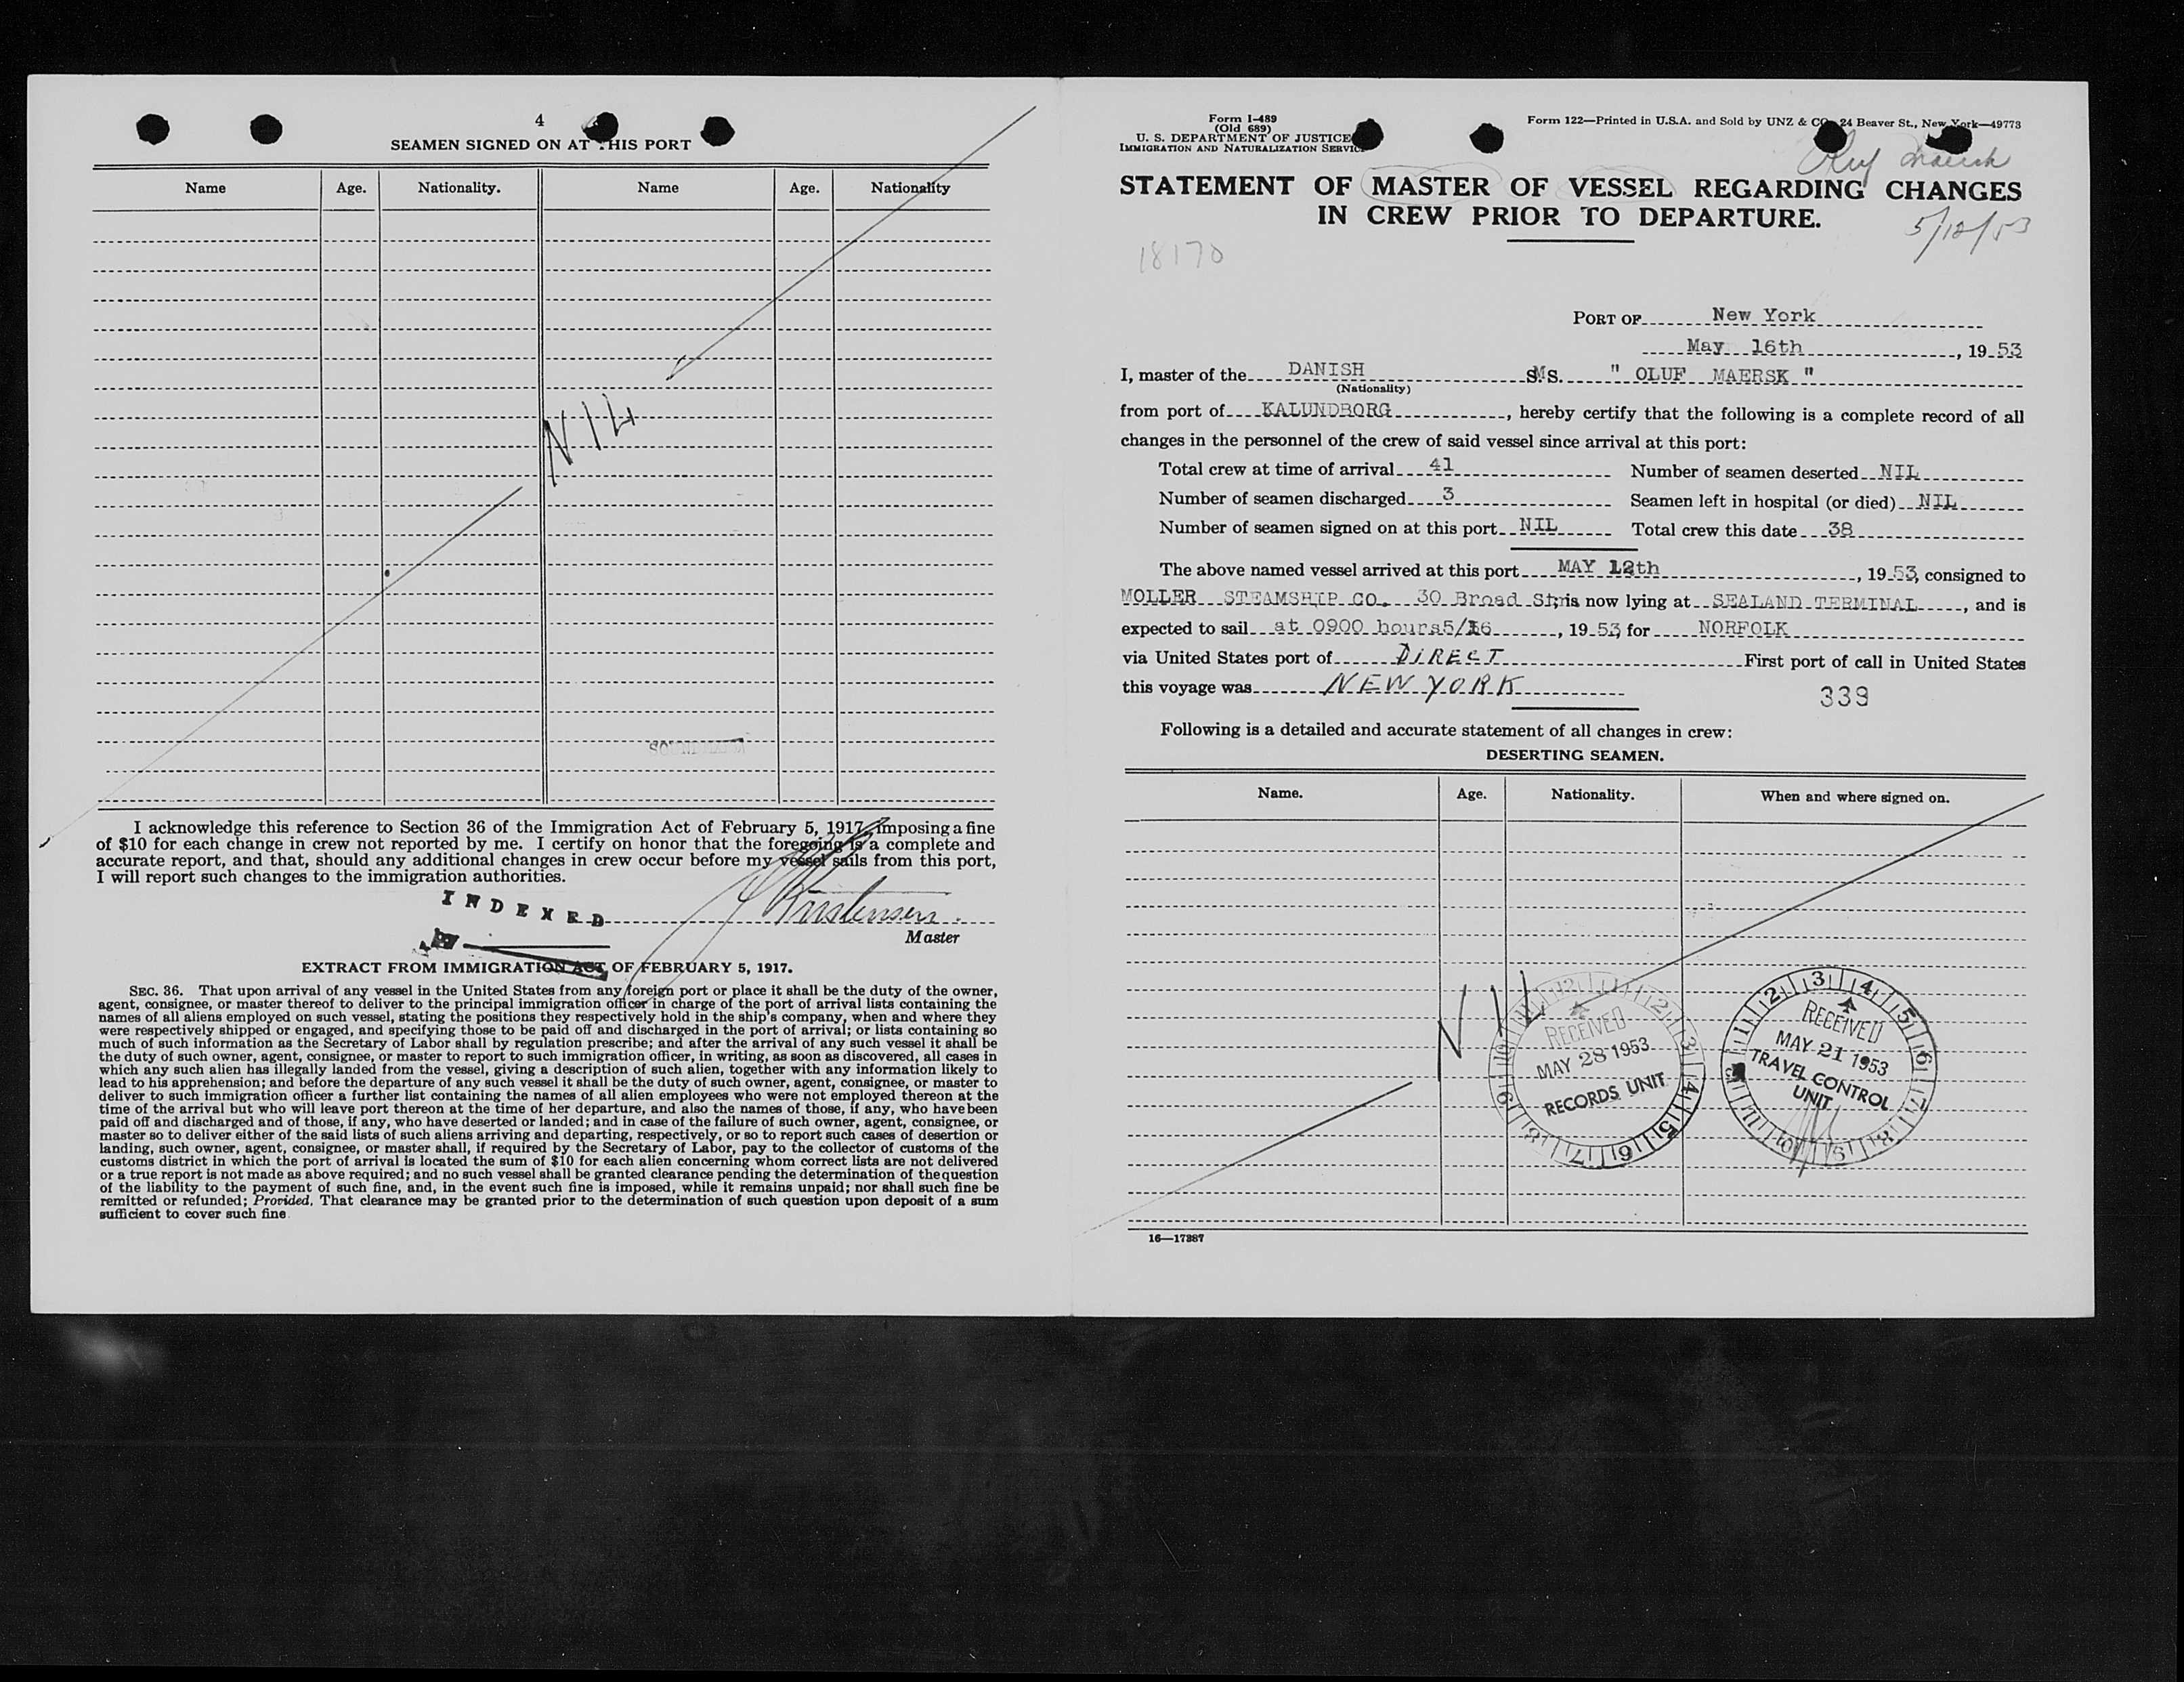 4
SEAMEN SIGNED ON AT THIS PORT
Name Age. Nationality. Name Age. Nationality
NIL
I acknowledge this reference to Section 36 of the Immigration Act of February 5, 1917, imposing a fine
of $10 for each change in crew not reported by me. I certify on honor that the foregoing is a complete and
accurate report, and that, should any additional changes in crew occur before my vessel sails from this port,
I will report such changes to the immigration authorities.
INDEXED
Kristensen.
Master
EXTRACT FROM IMMIGRATION ACT OF FEBRUARY 5, 1917.
SEC. 36. That upon arrival of any vessel in the United States from any foreign port or place it shall be the duty of the owner,
agent, consignee, or master thereof to deliver to the principal immigration officer in charge of the port of arrival lists containing the
names of all aliens employed on such vessel, stating the positions they respectively hold in the ship's company, when and where they
were respectively shipped or engaged, and specifying those to be paid off and discharged in the port of arrival; or lists containing so
much of such information as the Secretary of Labor shall by regulation prescribe; and after the arrival of any such vessel it shall be
the duty of such owner, agent, consignee, or master to report to such immigration officer, in writing, as soon as discovered, all cases in
which any such alien has illegally landed from the vessel, giving a description of such alien, together with any information likely to
lead to his apprehension; and before the departure of any such vessel it shall be the duty of such owner, agent, consignee, or master to
deliver to such immigration officer a further list containing the names of all alien employees who were not employed thereon at the
time of the arrival but who will leave port thereon at the time of her departure, and also the names of those, if any, who have been
paid off and discharged and of those, if any, who have deserted or landed; and in case of the failure of such owner, agent, consignee, or
master so to deliver either of the said lists of such aliens arriving and departing, respectively, or so to report such cases of desertion or
landing, such owner, agent, consignee, or master shall, if required by the Secretary of Labor, pay to the collector of customs of the
customs district in which the port of arrival is located the sum of $10 for each alien concerning whom correct lists are not delivered
or a true report is not made as above required; and no such vessel shall be granted clearance pending the determination of the question
of the liability to the payment of such fine, and, in the event such fine is imposed, while it remains unpaid; nor shall such fine be
remitted or refunded; Provided, That clearance may be granted prior to the determination of such question upon deposit of a sum
sufficient to cover such fine
Form I-489
(Old 689)
U. S. DEPARTMENT OF JUSTICE
IMMIGRATION AND NATURALIZATION SERVICE
Form 122—Printed in U.S.A. and Sold by UNZ & CO., 24 Beaver St., New York—49773
Oluf Maersk
STATEMENT OF MASTER OF VESSEL REGARDING CHANGES
IN CREW PRIOR TO DEPARTURE.
5/12/53
18170
PORT OF New York
May 16th, 1953
I, master of the DANISH MS. " OLUF MAERSK "
(Nationality)
from port of KALUNDBORG, hereby certify that the following is a complete record of all
changes in the personnel of the crew of said vessel since arrival at this port:
Total crew at time of arrival 41 Number of seamen deserted NIL
Number of seamen discharged 3 Seamen left in hospital (or died) NIL
Number of seamen signed on at this port NIL Total crew this date 38
The above named vessel arrived at this port MAY 12th, 1953, consigned to
MOLLER STEAMSHIP CO. 30 Broad St; is now lying at SEALAND TERMINAL, and is
expected to sail at 0900 hours 5/16, 1953, for NORFOLK
via United States port of DIRECT First port of call in United States
this voyage was NEW YORK
339
Following is a detailed and accurate statement of all changes in crew:
DESERTING SEAMEN.
Name. Age. Nationality. When and where signed on.
RECEIVED
MAY 28 1953
RECORDS UNIT
RECEIVED
MAY 21 1953
TRAVEL CONTROL
UNIT
16—17387